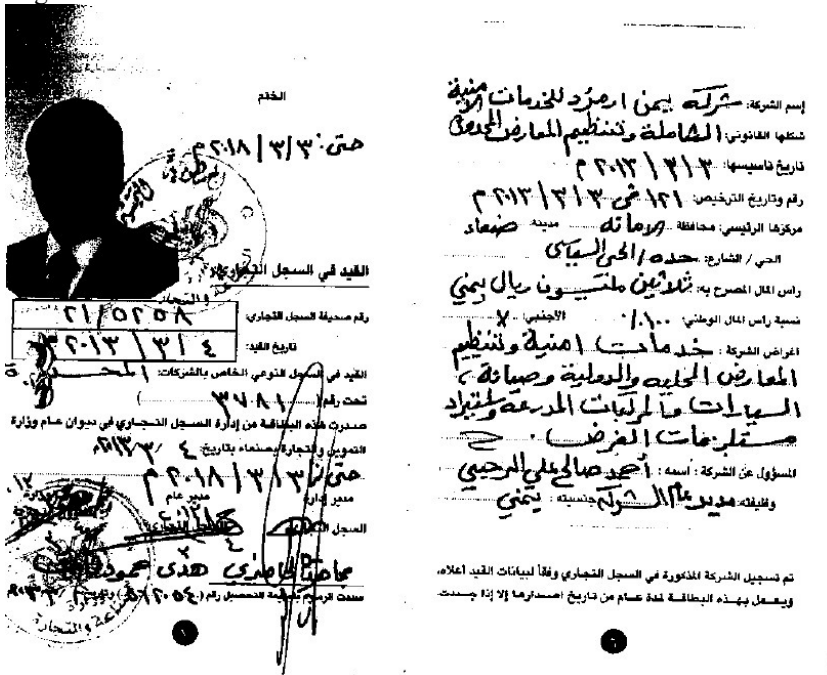 إسم الشركة: شركة يمن ارمرد للخدمات الامنية
شكلها القانوني: الشاملة وتنظيم المعارض المحدودة
تاريخ تاسيسها: ٣ / ٣ / ٢٠١٣ م
رقم وتاريخ الترخيص: ١٢١ في ٣ / ٣ / ٢٠١٣ م
مركزها الرئيسي: محافظة الامانه مدينة صنعاء
الحي / الشارع: حده / الحي السياسي
راس المال المصرح به: ثلاثين مليون ريال يمني
نسبة راس المال الوطني: ١٠٠٪ الأجنبي: X
اغراض الشركة: خدمات امنية وتنظيم
المعارض المحليه والدولية وصيانة
السيارات والمركبات المدرعة واستيراد
مستلزمات الغرض.
المسؤول عن الشركة: أسمه: أحمد صالح علي الرحبي
وظيفته: مدير عام الشركة جنسيته: يمني
تم تسجيل الشركة المذكورة في السجل التجاري وفقاً لبيانات القيد أعلاه،
ويعمل بهذه البطاقة لمدة عام من تاريخ اصدارها إلا إذا جددت.
٦
الختم
حتى: ٣ / ٣ / ٢٠١٨ م
القيد في السجل التجاري:
رقم صحيفة السجل التجاري: ٢١/٥٢٥٨
تاريخ القيد: ٤ / ٣ / ٢٠١٣
القيد في السجل النوعي الخاص بالشركات:
تحت رقم ( ٣٧٨١ )
صدرت هذه البطاقة من إدارة السجل التجاري في ديوان عام وزارة
التموين والتجارة بصنعاء بتاريخ: ٤ / ٣ / ٢٠١٣م
حتى ٣ / ٣ / ٢٠١٨ م
مدير إدارة مدير عام
السجل التجاري
هدى محمود
سددت الرسوم بقسيمة التحصيل رقم